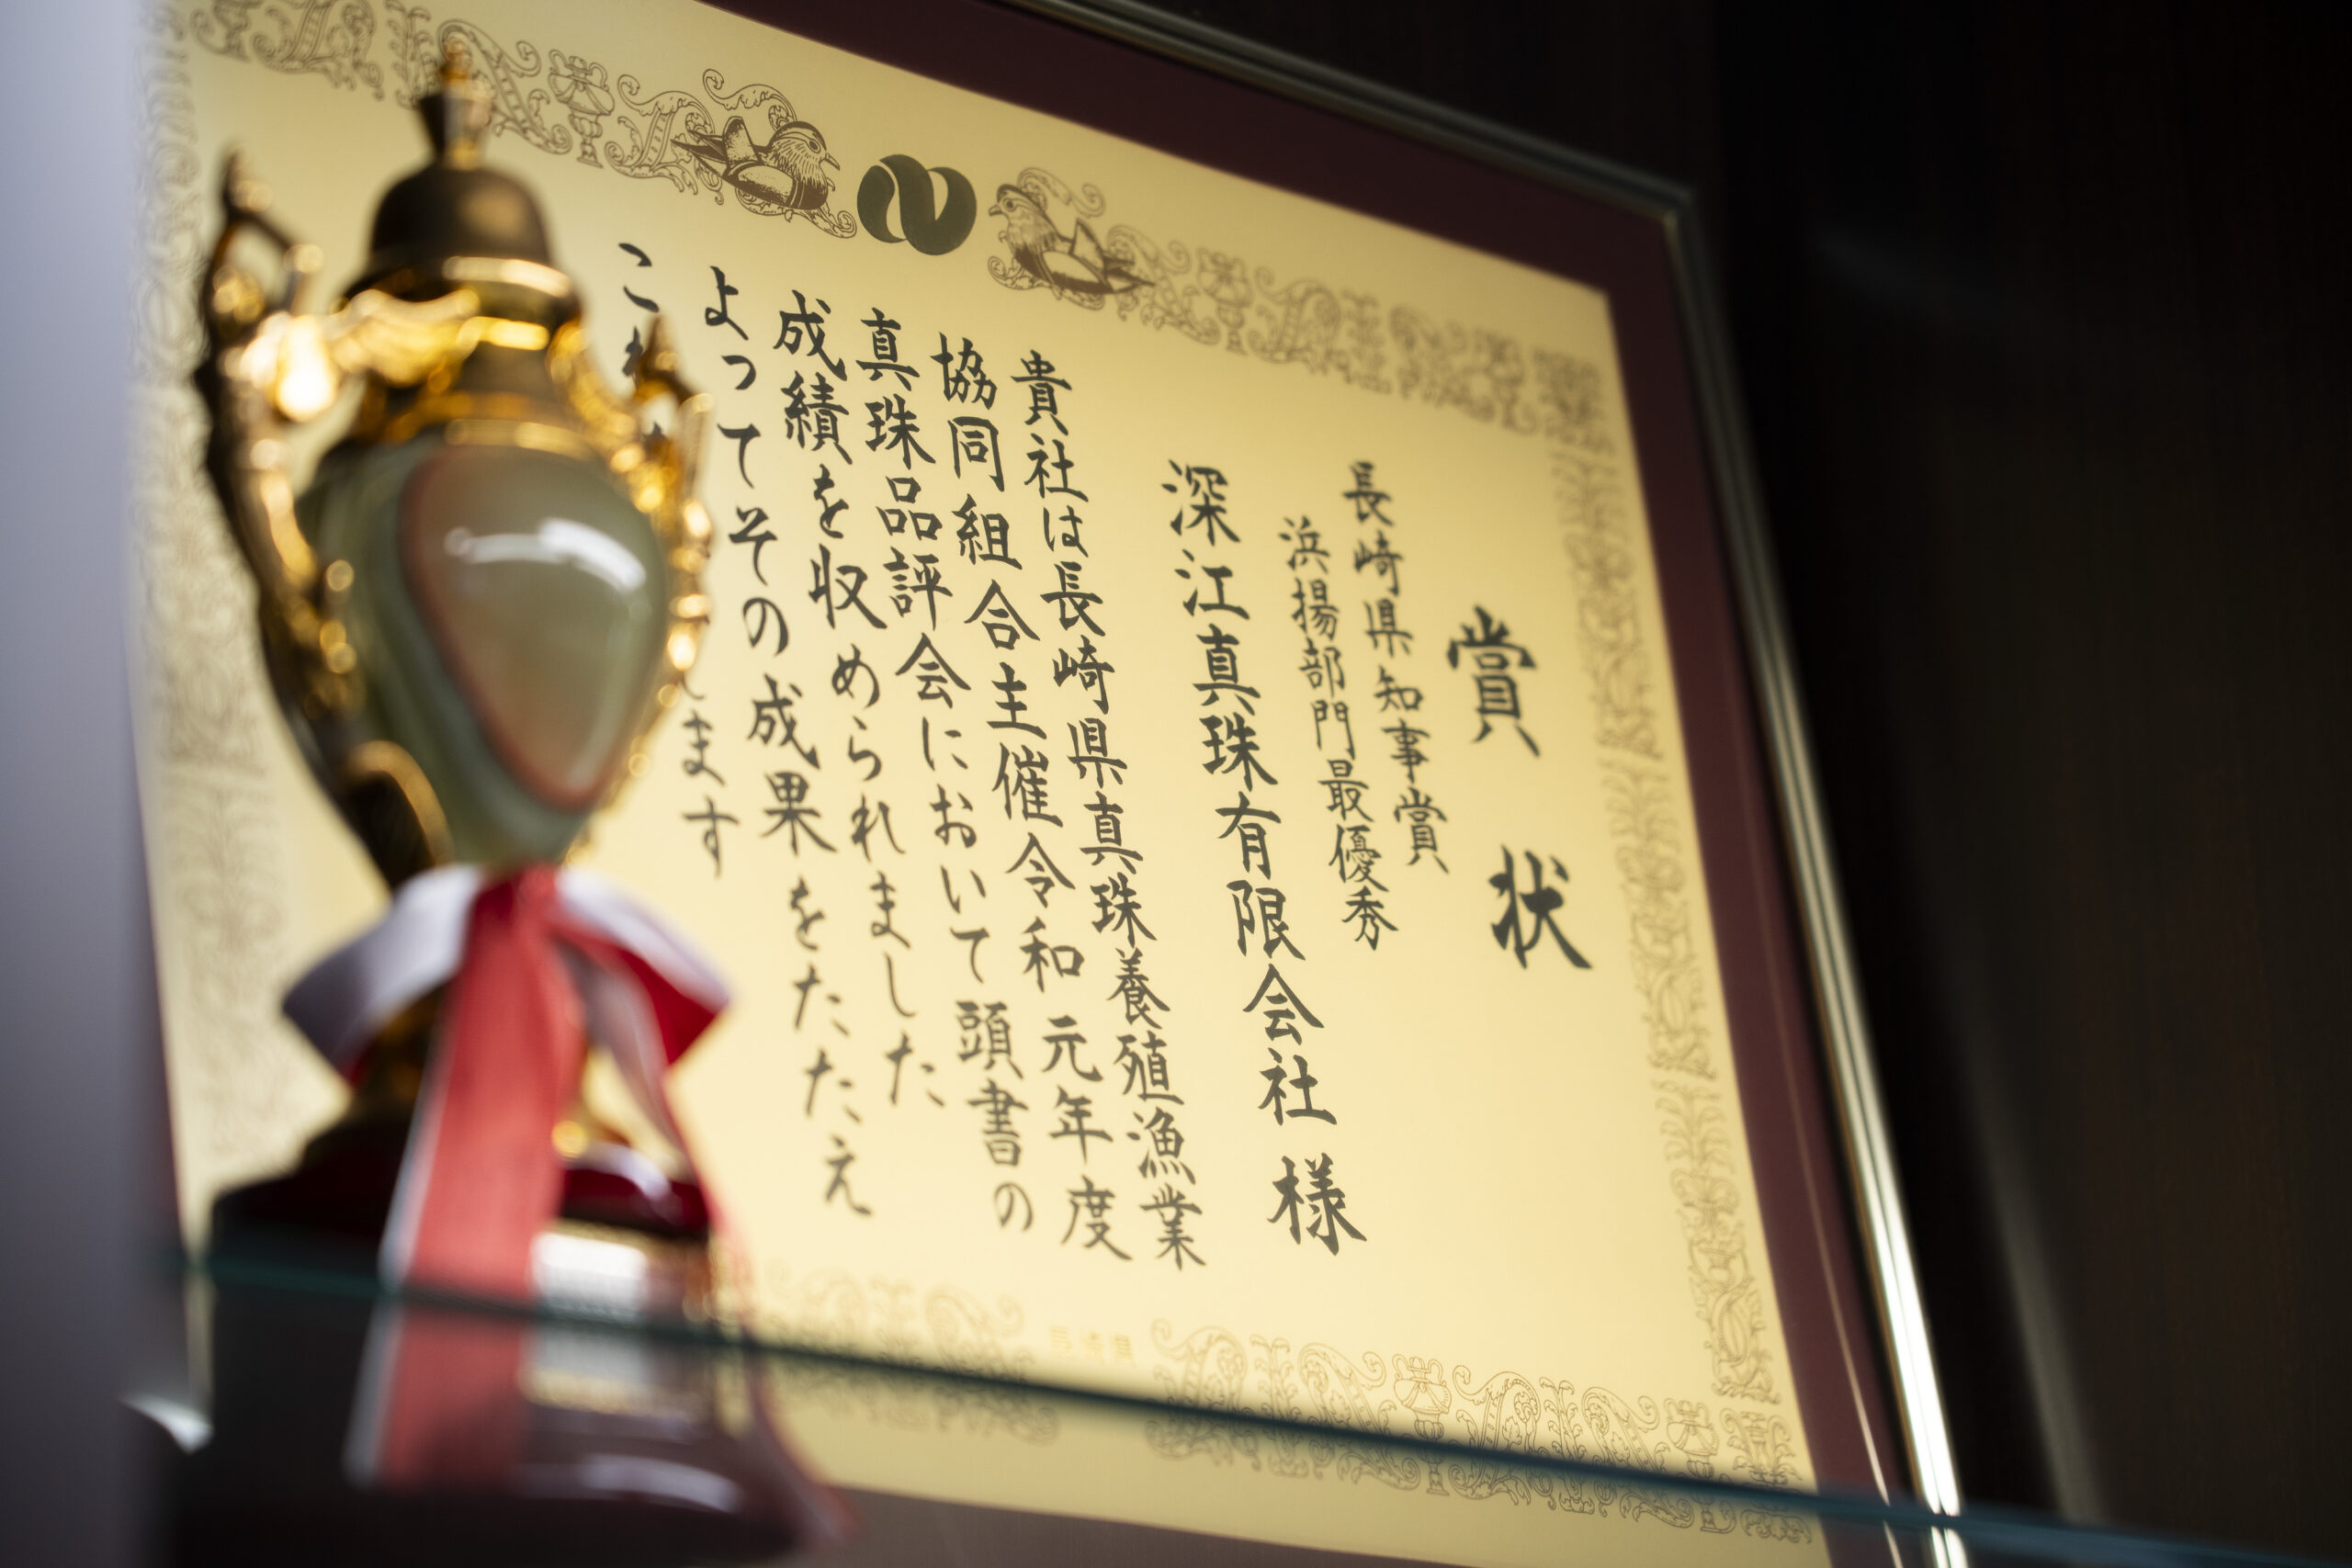 賞状
長崎県知事賞
浜揚部門最優秀
深江真珠有限会社 様
貴社は長崎県真珠養殖漁業
協同組合主催令和元年度
真珠品評会において頭書の
成績を収められました
よってその成果をたたえ
これ
します
長崎県